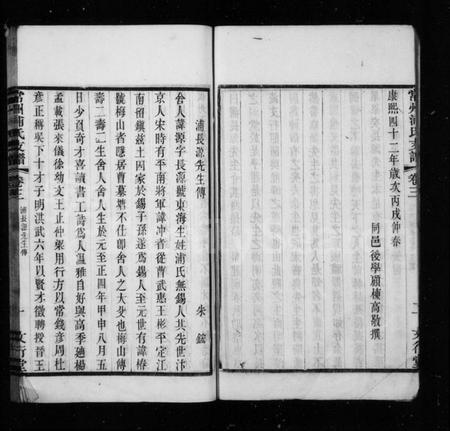 康熙四十二年歲次丙戌仲春
同邑後學顧棟高敬撰
常州浦氏支譜
卷三
二
文行堂
浦長源先生傳
朱鉉
舍人諱源字長源號東海生姓浦氏無錫人其先世汴
京人宋時有平南將軍諱冲者從曹武惠王彬平定江
南留鎮茲土因家於錫子孫遂爲錫人至元世有諱椿
號梅山者隱居曹墓墩不仕卽舍人之大父也梅山傳
壽二壽二生舍人舍人生於元至正四年甲申八月五
日少負奇才喜讀書工詩爲人溫雅自好與高季廸楊
孟載張來儀徐幼文王止仲梁用行方以常錢彥周杜
彥正稱吳下十才子明洪武六年以賢才徵聘授晉王
常州浦氏支譜
卷三
浦長源先生傳
一
文行堂